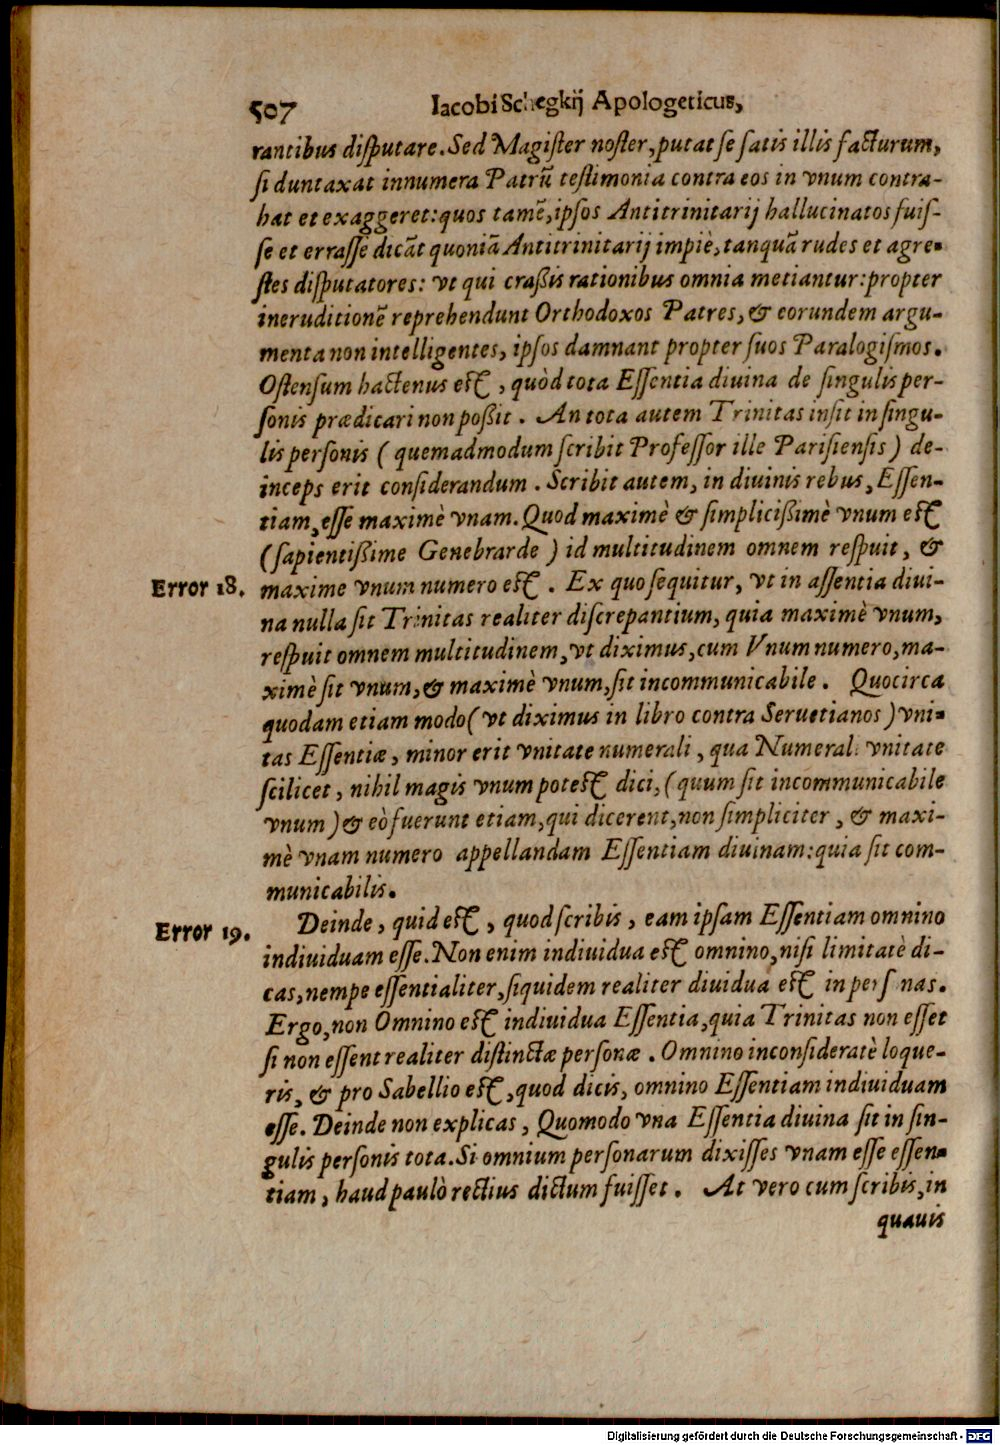 507 Iacobi Schegkij Apologeticus,
rantibus disputare. Sed Magister noster, putat se satis illis facturum,
si duntaxat innumera Patrū testimonia contra eos in vnum contra-
hat et exaggeret: quos tamẽ, ipsos Antitrinitarij hallucinatos fuis-
se et errasse dicãt quoniã Antitrinitarij impiè, tanquã rudes et agre-
stes disputatores: vt qui craßis rationibus omnia metiantur: propter
ineruditionẽ reprehendunt Orthodoxos Patres, & eorundem argu-
menta non intelligentes, ipsos damnant propter suos Paralogismos.
Ostensum hactenus est, quòd tota Essentia diuina de singulis per-
sonis prædicari non poßit. An tota autem Trinitas insit in singu-
lis personis ( quemadmodum scribit Professor ille Parisiensis ) de-
inceps erit considerandum. Scribit autem, in diuinis rebus, Essen-
tiam, esse maximè vnam. Quod maximè & simplicißimè vnum est
( sapientißime Genebrarde ) id multitudinem omnem respuit, &
Error 18. maxime vnum numero est. Ex quo sequitur, vt in assentia diui-
na nulla sit Trinitas realiter discrepantium, quia maximè vnum,
respuit omnem multitudinem, vt diximus, cum Vnum numero, ma-
ximè sit vnum, & maximè vnum, sit incommunicabile. Quocirca
quodam etiam modo ( vt diximus in libro contra Seruetianos ) vni-
tas Essentiæ, minor erit vnitate numerali, qua Numerali vnitate
scilicet, nihil magis vnum potest dici, ( quum sit incommunicabile
vnum ) & eò fuerunt etiam, qui dicerent, non simpliciter, & maxi-
mè vnam numero appellandam Essentiam diuinam: quia sit com-
municabilis.
Error 19. Deinde, quid est, quod scribis, eam ipsam Essentiam omnino
indiuiduam esse. Non enim indiuidua est omnino, nisi limitatè di-
cas, nempe essentialiter, siquidem realiter diuidua est in personas.
Ergo, non Omnino est indiuidua Essentia, quia Trinitas non esset
si non essent realiter distinctæ personæ. Omnino inconsideratè loque-
ris, & pro Sabellio est, quod dicis, omnino Essentiam indiuiduam
esse. Deinde non explicas, Quomodo vna Essentia diuina sit in sin-
gulis personis tota. Si omnium personarum dixisses vnam esse essen-
tiam, haud paulò rectius dictum fuisset. At vero cum scribis, in
quauis
Digitalisierung gefördert durch die Deutsche Forschungsgemeinschaft - DFG